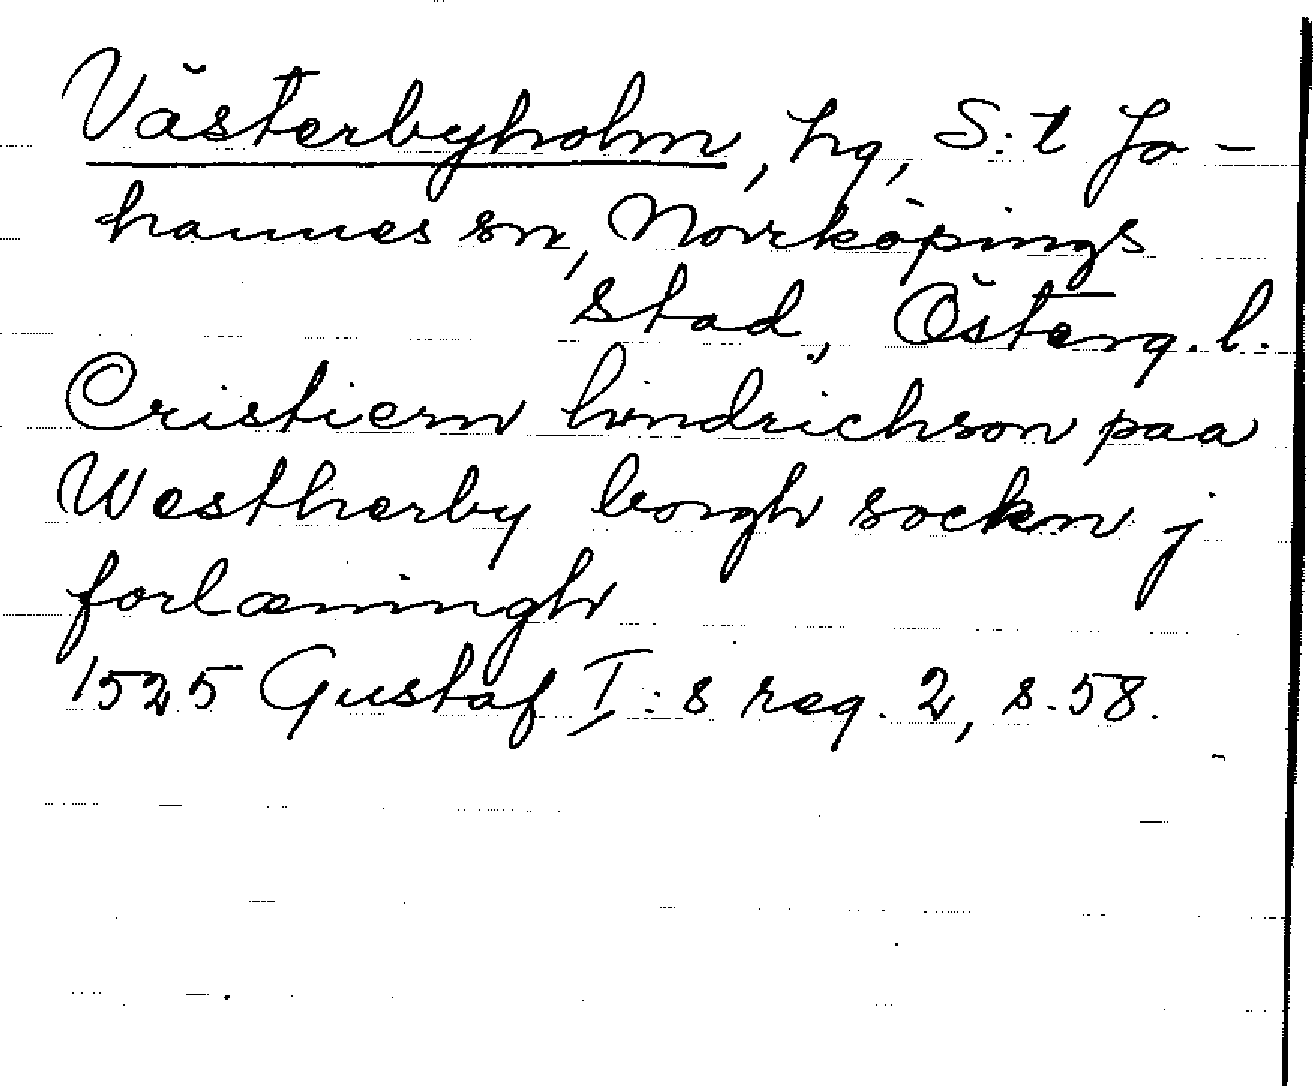 Västerbyholm, hg, S:t Jo-
hannes sn, Norrköpings
stad, Österg.l.
Cristiern hindrichson paa
Westherby borgh sockn j
forlæningh
1525 Gustaf I:s reg. 2, s. 58.